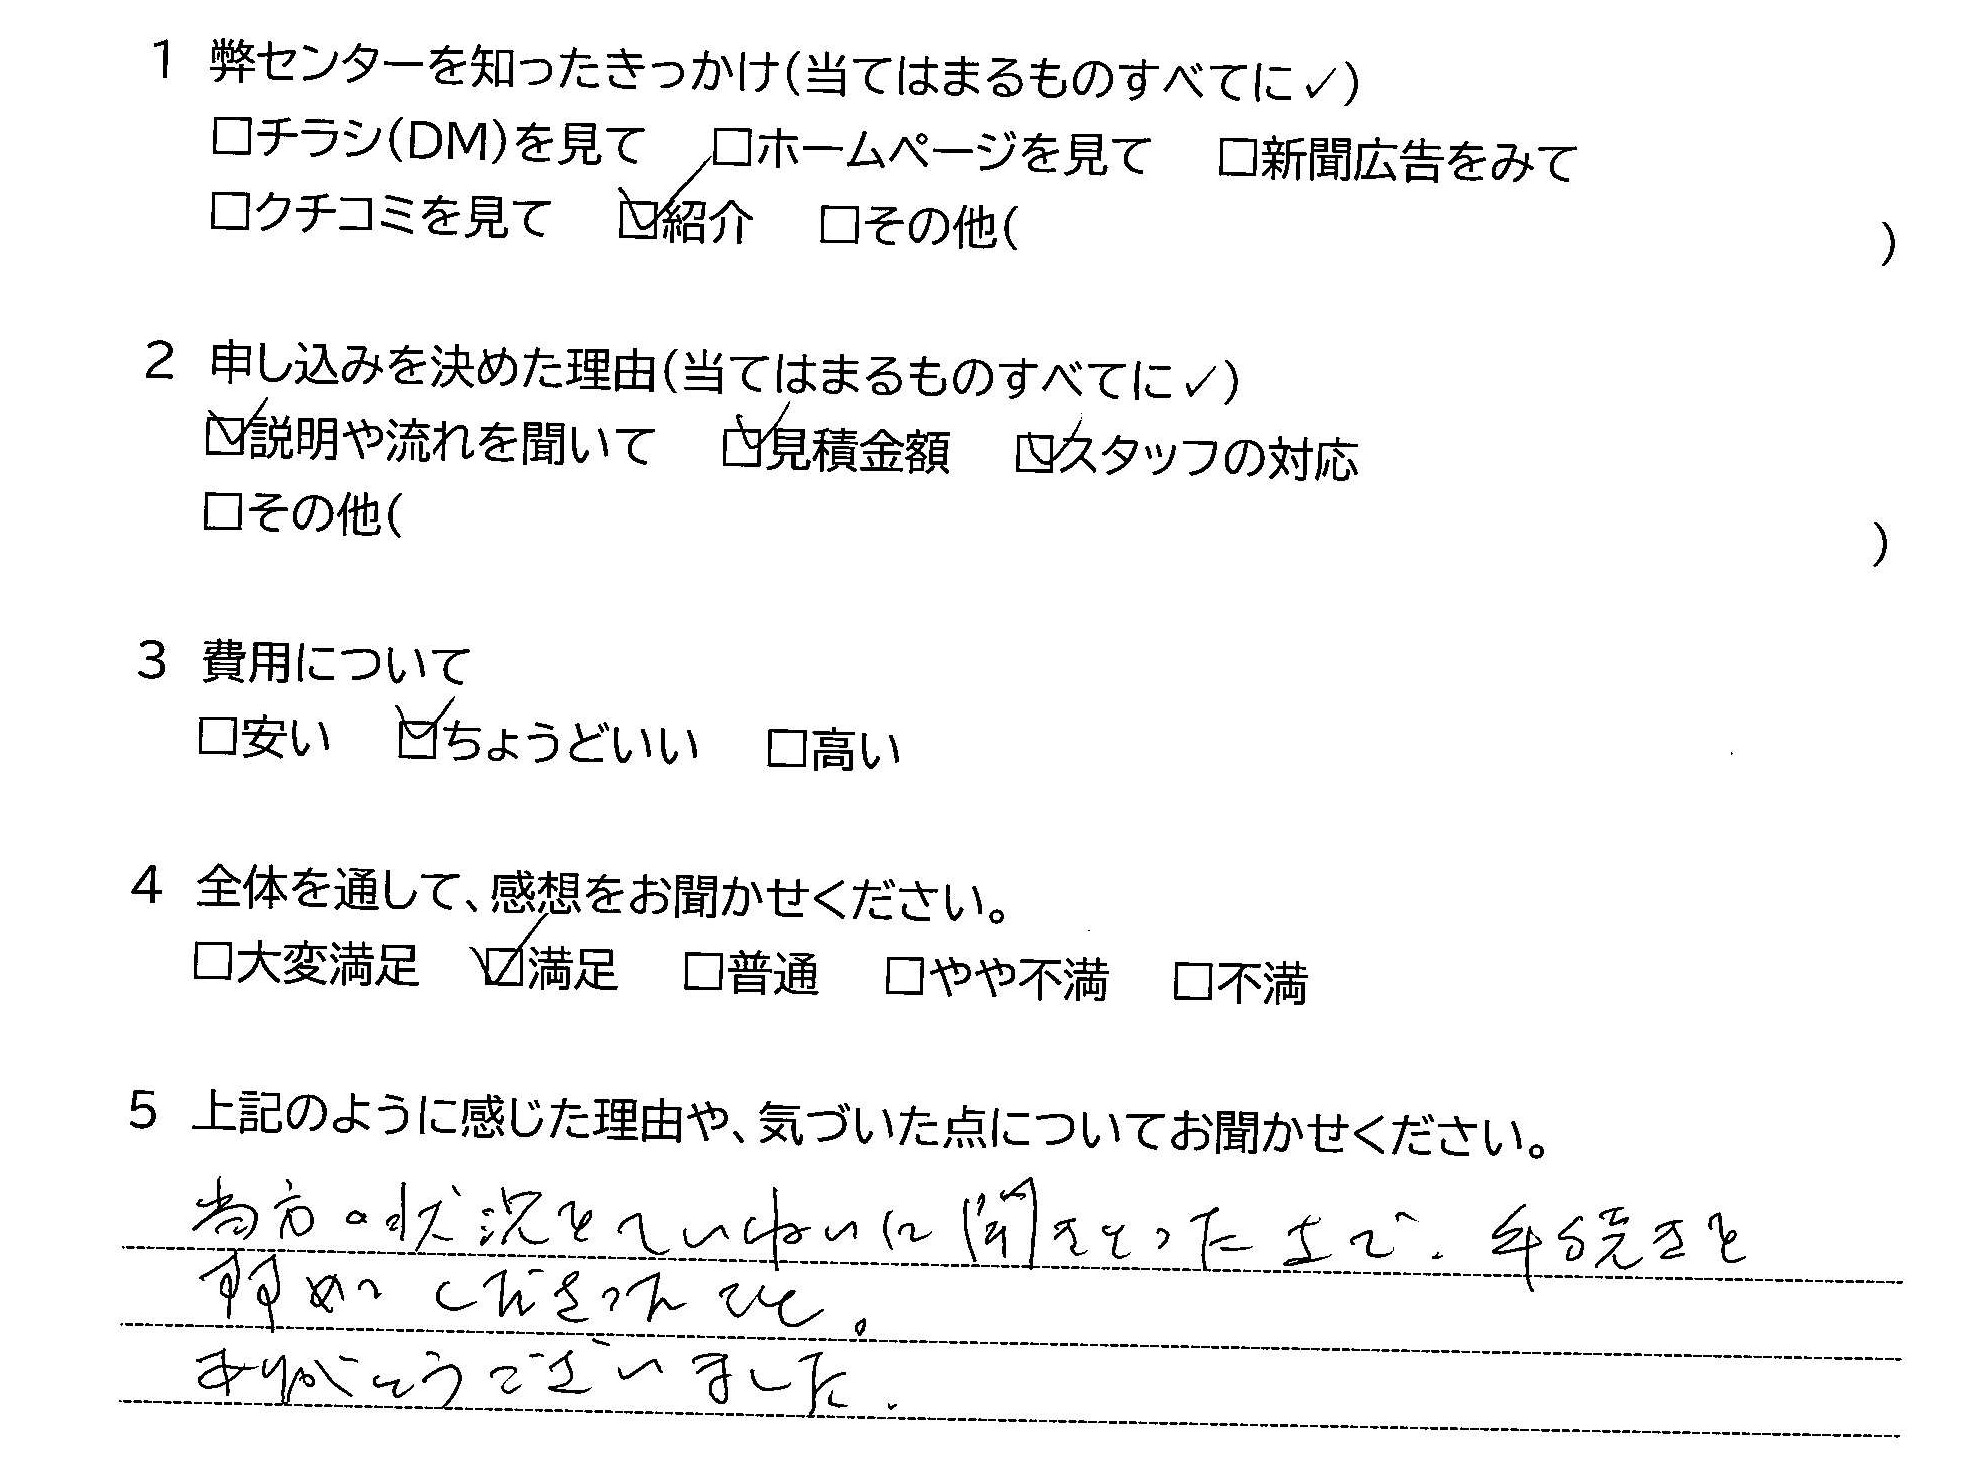 1 弊センターを知ったきっかけ(当てはまるものすべてに✓)
□チラシ(DM)を見て □ホームページを見て □新聞広告をみて
□クチコミを見て ☑紹介 □その他( )
2 申し込みを決めた理由(当てはまるものすべてに✓)
☑説明や流れを聞いて ☑見積金額 ☑スタッフの対応
□その他( )
3 費用について
□安い ☑ちょうどいい □高い
4 全体を通して、感想をお聞かせください。
□大変満足 ☑満足 □普通 □やや不満 □不満
5 上記のように感じた理由や、気づいた点についてお聞かせください。
当方の状況をていねいに聞きとった上で、手続きを
めて くださったこと。
ありがとうございました。